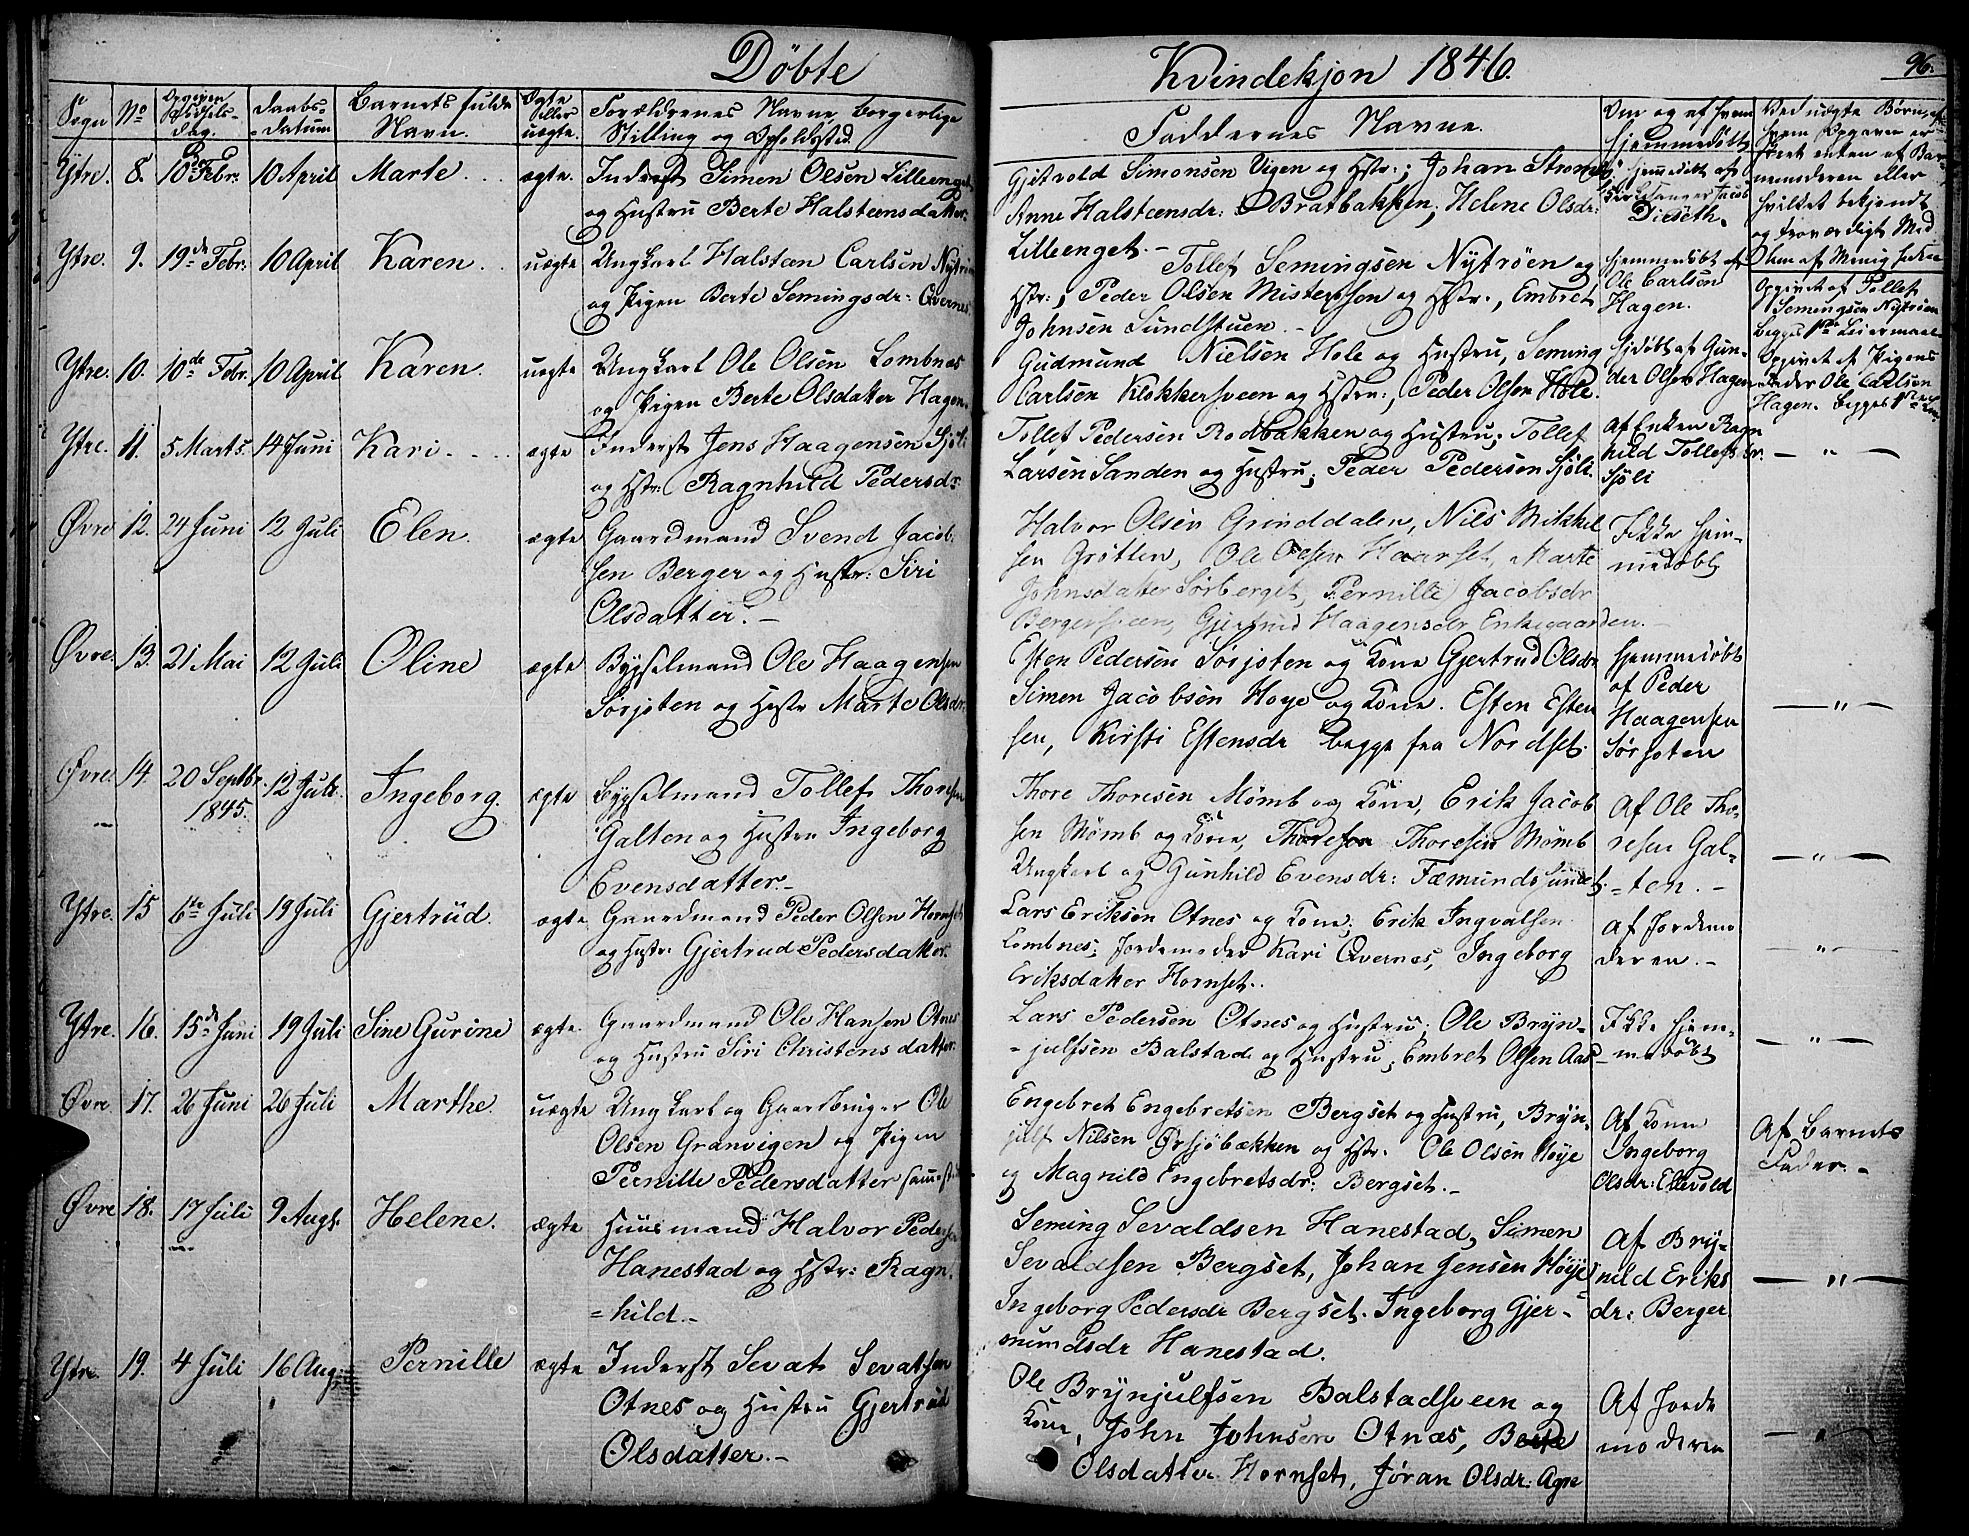 Döbte
Sogn No Opgiven Fødsels-Dag. Daabs-Datum Barnets fulde Navn. Ægte eller uægte. Forældrenes Navne, borgerlige Stilling og Opholdssted.
Ytre. 8. 10de Febr. 10 April Marte ægte. Inderst Simen Olsen Lilleenget
og Hustru Berte Halsteensdatter.
Ytre. 9. 19de Febr. 10 April Karen uægte Ungkarl Halsteen Carlsen Nytrøen
og Pigen Berte Semingsdr: Qvernes.
Ytre. 10. 10de Febr. 10 April Karen. uægte Ungkarl Ole Olsen Lombnæs
og Pigen Berte Olsdatter Hagen.
Ytre. 11. 5 Marts. 14 Juni Kari ægte Inderst Jens Haagensen Sjøli
og Hstr: Ragnhild Pedersdr.
Øvre 12. 24 Juni 12 Juli Elen. ægte Gaardmand Svend Jacob-
sen Berger og Hustr: Siri
Olsdatter. -
Øvre. 13. 21 Mai 12 Juli Oline ægte Bygselmand Ole Haagensen
Sørjoten og Hustr Marte Olsdr.
Øvre. 14. 20 Septbr. 1845. 12 Juli. Ingeborg. ægte Bygselmand Tollef Thoresen
Galten og Hustru Ingeborg
Evensdatter. -
Ytre. 15 6te Juli 19 Juli Gjertrüd. ægte Gaardmand Peder Olsen Hornset
og Hustr: Gjertrud Pedersdatter.
Ytre. 16. 15de Juni 19 Juli Sine Gurine ægte. Gaardmand Ole Hansen Otnes
og Hustru Siri Christensdatter.
Øvre. 17. 26 Juni 26 Juli Marthe. uægte Ungkarl og Gaardbruger Ole
Olsen Granvigen og Pigen
Pernille Pedersdatter sammested
Øvre 18. 17 Juli 9 Augt. Helene. ægte Huusmand Halvor Pedersen
Hanestad og Hstr: Ragn-
=hild. -
Ytre. 19. 4 Juli 16 Aug. Pernille ægte Inderst Sevat Sevatsen
Otnes og Hustru Gjertrud
Olsdatter. -
Kvindekjön 1846. 96.
Faddernes Navne.
Om og af hvem hjemmedöbt
Ved uægte Börn, af hvem Opgaven er skeet enten af Barnemoderen eller hvilket bekjendt og troværdigt Med
Gjetvold Simonsen Vigen og Hstr:; Johan
Anne Halsteensdr: Bratbakken; Helene Olsdr:
Lilleenget. -
hjemmedöbt af
Jacob
Diseth.
Tollef Semingsen Nytrøen og
Hstr:, Peder Olsen Misterosen og Hstr:, Embret
Johnsen Sundstuen. -
hjemmedöbt af
Ole Carlsen
Hagen.
Opgivet af Tollef
Semingsen Nytrøen
begges 1ste Leiermaal
Gudmund Nielsen Hole og Hustru, Seming
Carlsen Klokkersveen og Hstru:, Peder Olsen Hole.
Hjdöbt af Gun-
der Olsen Hagen
Opgivet af Pigens
Fader Ole Carlsen
Hagen. begges 1ste
Tollef Pedersen Rodbakken og Hustru; Tollef
Larsen Sanden og Hustru; Peder Pedersen Sjöli.
af Enken Ragn
hild Tollefsdr.
Sjöli
- " -
Halvor Olsen Grinddalen, Nils Mikkel
sen Grötten, Ole Olsen Haarset, Marte
Johnsdatter Sørberget, Pernille Jacobsdr
Bergersveen, Gjertrud Haagensdr Enkegaarden. -
Ikke hjem-
medöbt
Esten Pedersen Sørjoten og Kone Gjertrud Olsdr
Simen Jacobsen Hoye og Kone. Esten Esten
sen, Kirsti Estensdr begge fra Nordset.
hjemmedöbt
af Peder
Haagensen
Sørjoten
- " -
Thore Thoresen Mømb og Kone, Erik Jacob
sen Mømb og Kone, Thoreson Thoresen Mømb
Ungkarl og Gunhild Evensdr: Fæmundssundet.
Af Ole Tho-
resen Gal-
=ten. -
- " -
Lars Eriksen Otnes og Kone; Erik Ingvalsen
Lombnes; Jordemoder Kari Qvernes, Ingeborg
Eriksdatter Hornset..
af Jordemo
deren. -
- " -
Lars Pedersen Otnes og Hustru; Ole Bryn-
-julfsen Balstad og Hustru; Embret Olsen Aas
Ikke hjem-
medöbt
- " -
Engebret Engebretsen Bergset og Hustru, Bryn-
julf Nilsen Ørsjöbækken og Hstr. Ole Olsen Høye
og Magnild Engebretsdr: Bergset. -
Af Kone
Ingeborg
Olsdr: Ellevold
Af Barnets
Fader. -
Seming Sevaldsen Hanestad, Simen
Sevaldsen Bergset, Johan Jensen Høye
Ingeborg Pedersdr Bergset. Ingeborg Gjer-
mundsdr Hanestad.
Af Bry-
nild Eriks
dr: Berger
- " -
Ole Brynjulfsen Balstadsveen og
Kone, John Johnsen Otnæs, Berte
Olsdatter Hornset, Jøran Olsdr:
Af Jorde
moderen
- " -